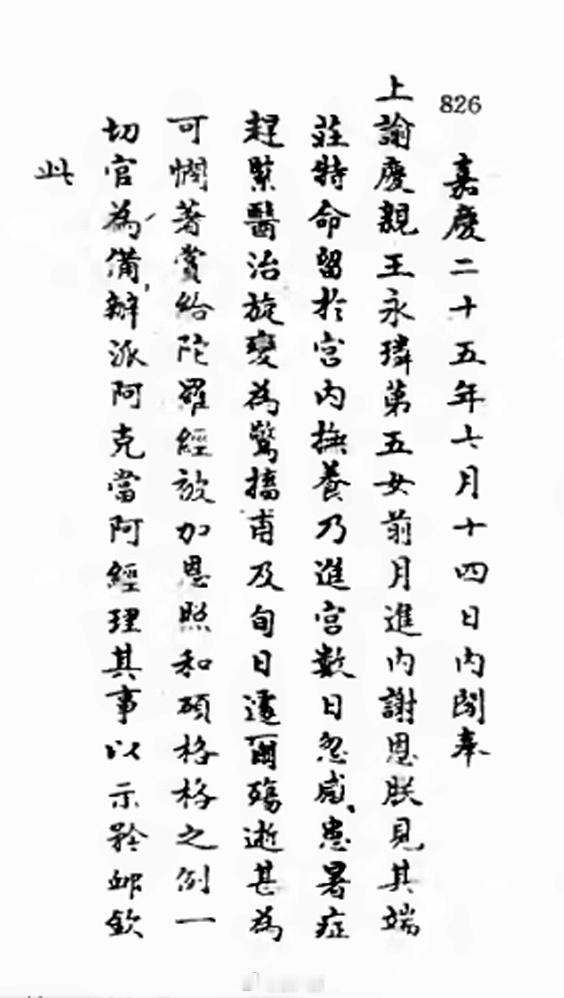 826
嘉慶二十五年七月十四日內閣奉
上諭慶親王永璘第五女前月進內謝恩朕見其端
莊特命留於宮內撫養乃進宮數日忽感患暑症
趕緊醫治旋變為驚搐甫及旬日遽爾殤逝甚為
可憫著賞給陀羅經被加恩照和碩格格之例一
切官為備辦派阿克當阿經理其事以示矜卹欽
此